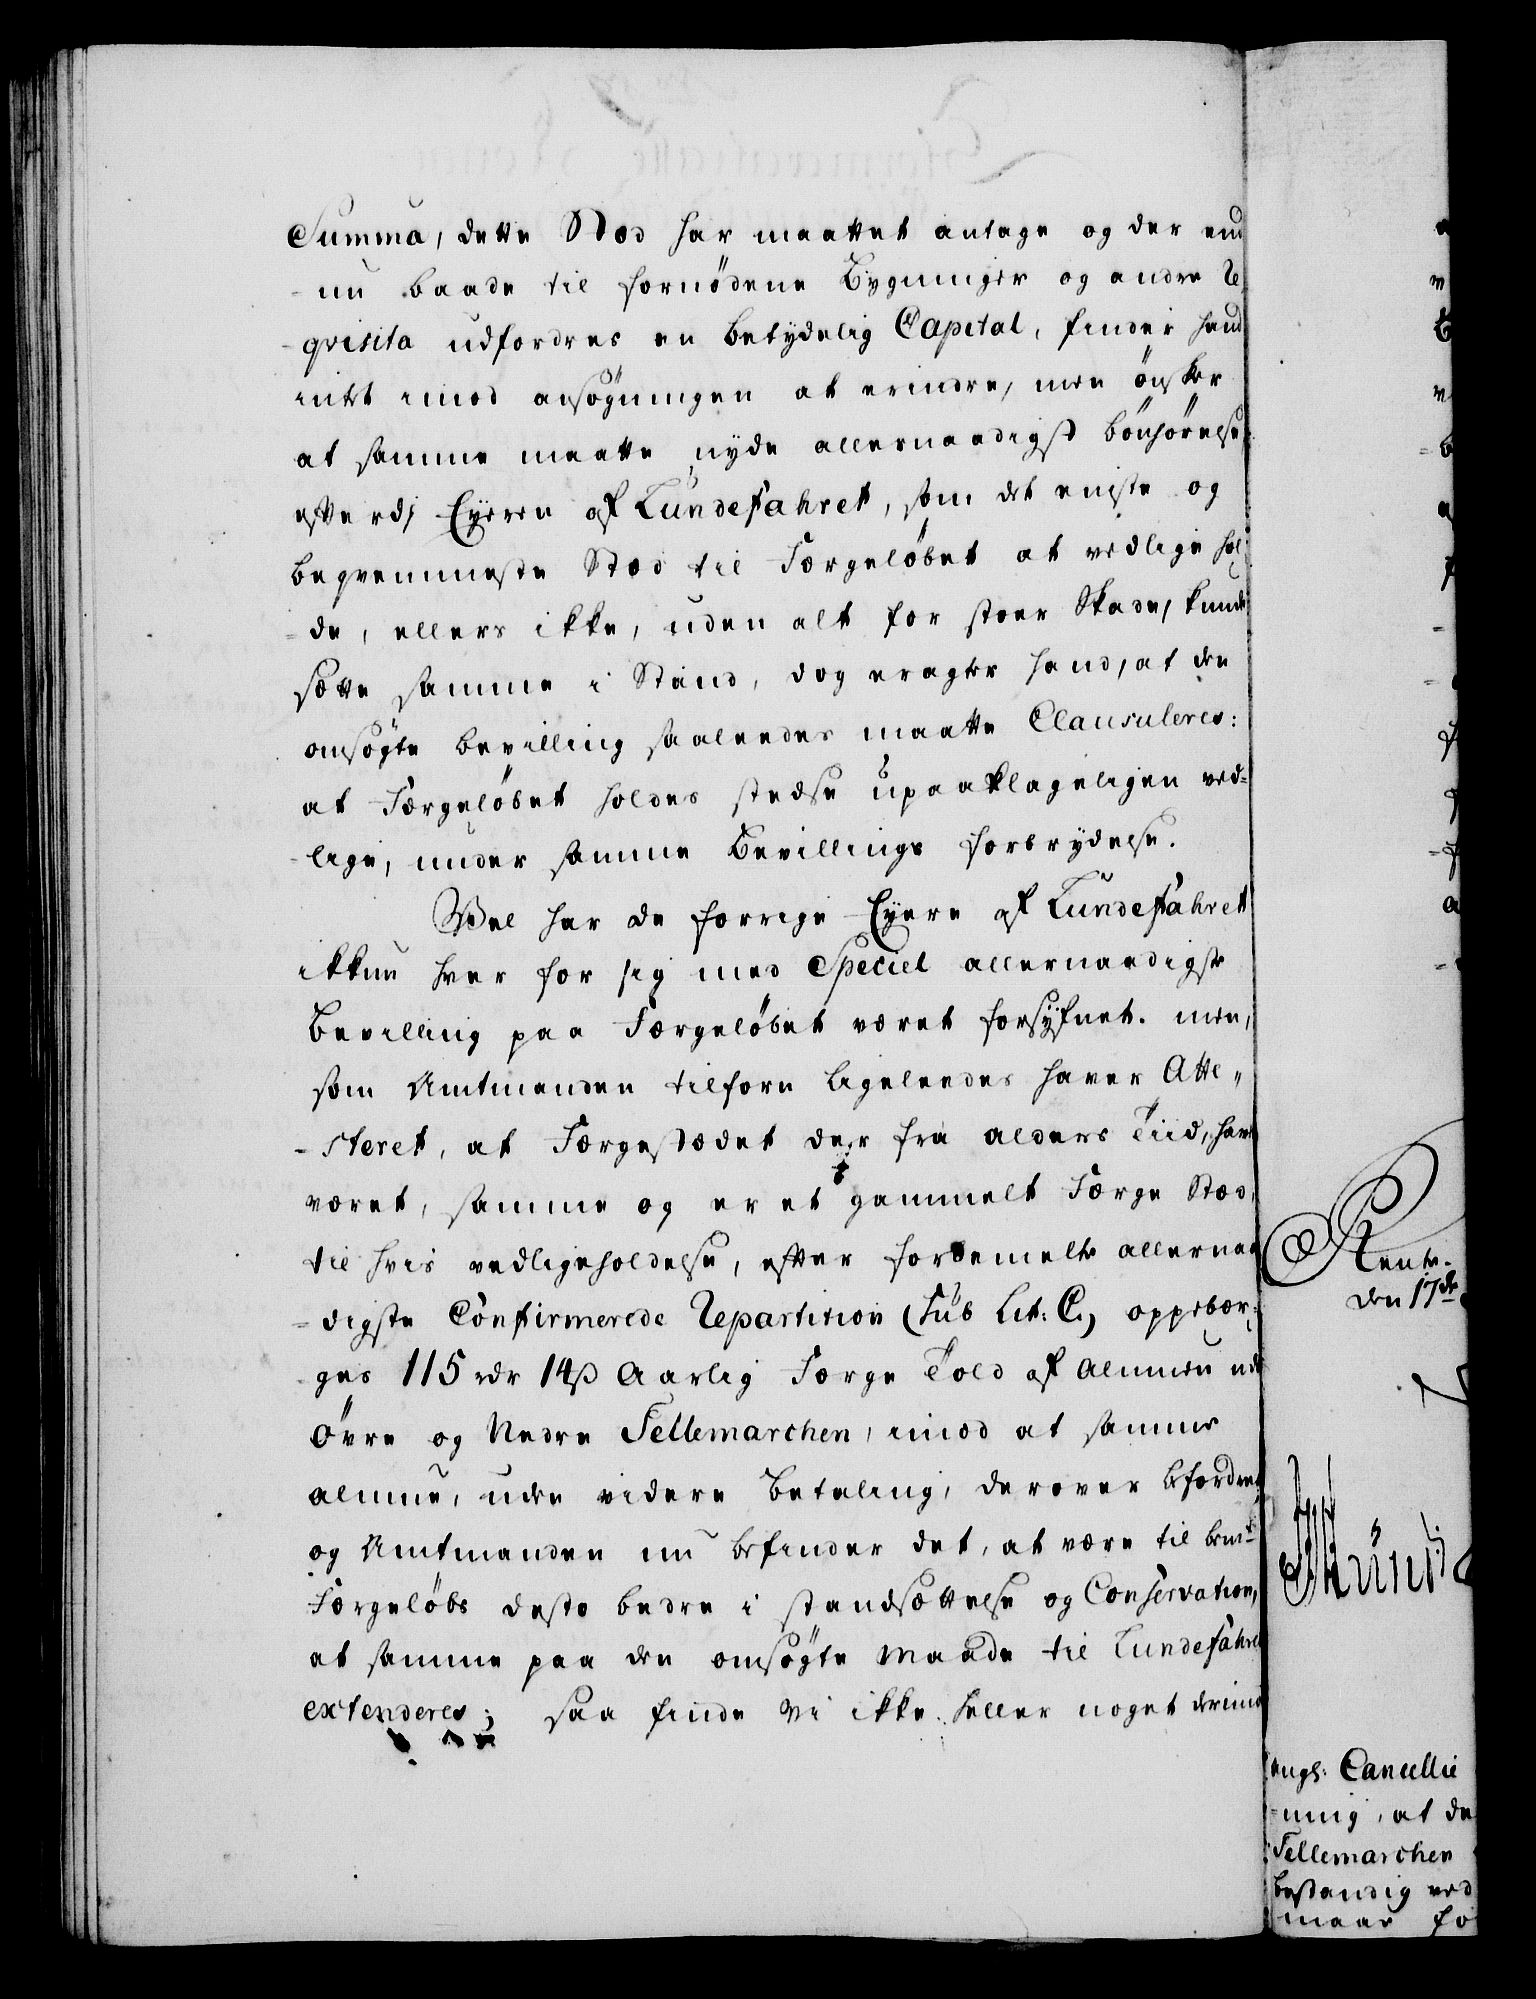 Summa, dette Stæd har maattet antage og der end
-nu baade til fornødene Bygninger og andre Re-
-qvisita udfordres en betydelig Capital, finder hand
intet imod ansøgningen at erindre, men ønsker
at samme maatte nyde allernaadigst bønhørelse,
efterdj Eyeren af Lundefahret, som det eniste og
beqvemmeste Stæd til Færgeløbet at vedlige hol-
-de, ellers ikke, uden alt for stoer Skade, kunde
sætte samme i Stand, dog eragter hand, at den
omsøgte bevilling saaledes maatte Clausuleres:
at Færgeløbet holdes stedse upaaklageligen ved-
-lige, under samme Bevillings forbrydelse.
Vel har de forrige Eyere af Lundefahret
ikkun hver for sig med Speciel allernaadigste
Bevilling paa Færgeløbet været forsÿnet. men,
som Amtmanden tilforn ligeledes haver Atte-
-steret, at Færgestædet der fra alders Tiid, har
været, samme og er et gammelt Færge Stæd,
til hvis vedligeholdelse, efter forbemelte allernaa
-digste Confirmerede Repartition (Sub Lit: C.) oppebær-
-ges 115 rdr 14ß Aarlig Færge Told af Almuen udi
Øvre og Nedre Tellemarchen, imod at samme
almue, uden videre Betaling, derover befordres
og Amtmanden nu befinder det, at være til bemte
Færgeløbs desto bedre i standsættelse og Conservation,
at samme paa den omsøgte Maade til Lundefahret
extenderes; saa finde Vi ikke heller noget derimod
Rente-
den 17de
engl: Cancellie
-ning, at de
Tellemarchen
bestandig ved
maae fo